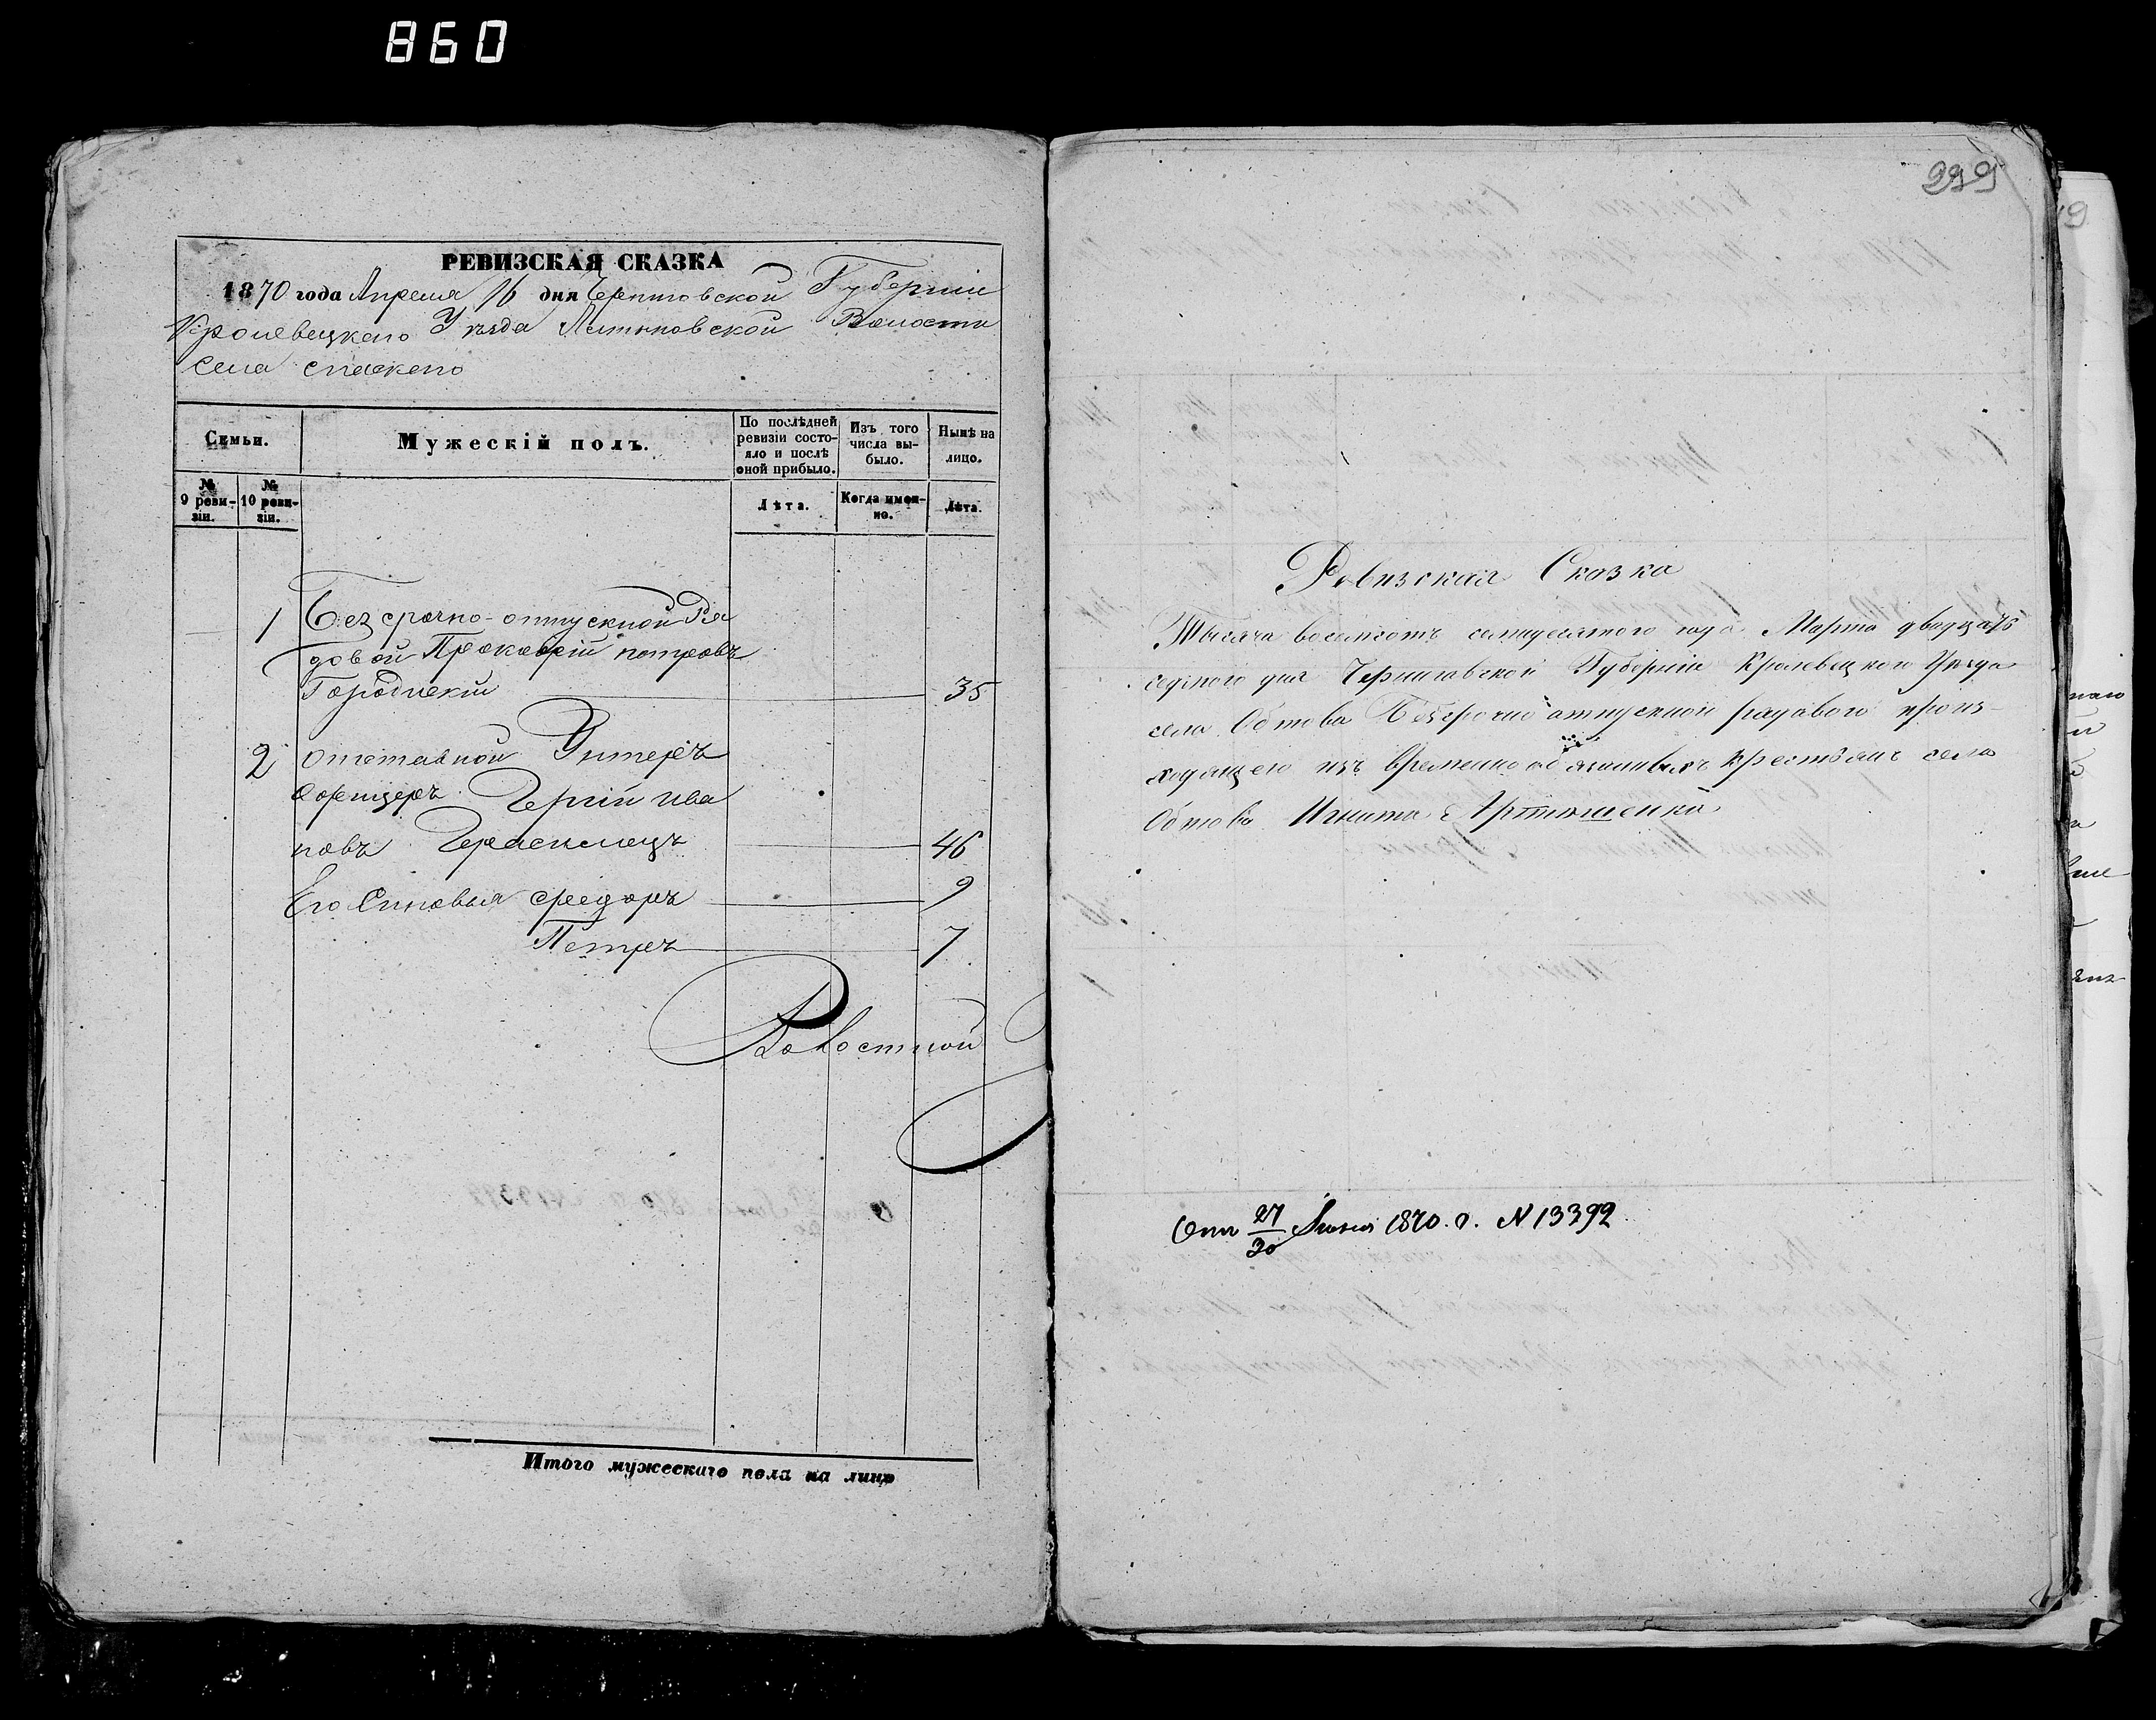 860
РЕВИЗСКАЯ СКАЗКА
1870 года Апреля 16 дня Черниговской Губерніи
Кролевецкаго Уезда Алтыновской Волости
села спаскаго
Семьи.
Мужескій полъ.
По послѣдней ревизіи состо-
яло и послѣ
оной прибыло.
Изъ того
числа вы-
было.
Нынѣ на
лицо.
№
9 реви-
зіи.
№
10 реви-
зіи.
Лѣта.
Когда имен-
но.
Лѣта.
1 Безсрочно-отпускной Ря
довой Прокофій петровъ
Городискій 35
2 отставной Унтеръ
Офицеръ Сергій ива
новъ Гераснмецъ 46
Его Синовья Федоръ 9
Петръ 7
Волостной
Итого мужескаго пола на лицо
299
Ревизская Сказка
Тысяча восемсотъ семидесятого года Марта двадцать
седмого дня Черниговской Губерніи Кролевецкого Уезда
села Обтова Безсрочно отпускной рядового проис-
ходящего изъ временно обязанныхъ крестьянъ села
Обтова Игната Артюшенка
Отъ 27/30 Іюня 1870. г. N 13392